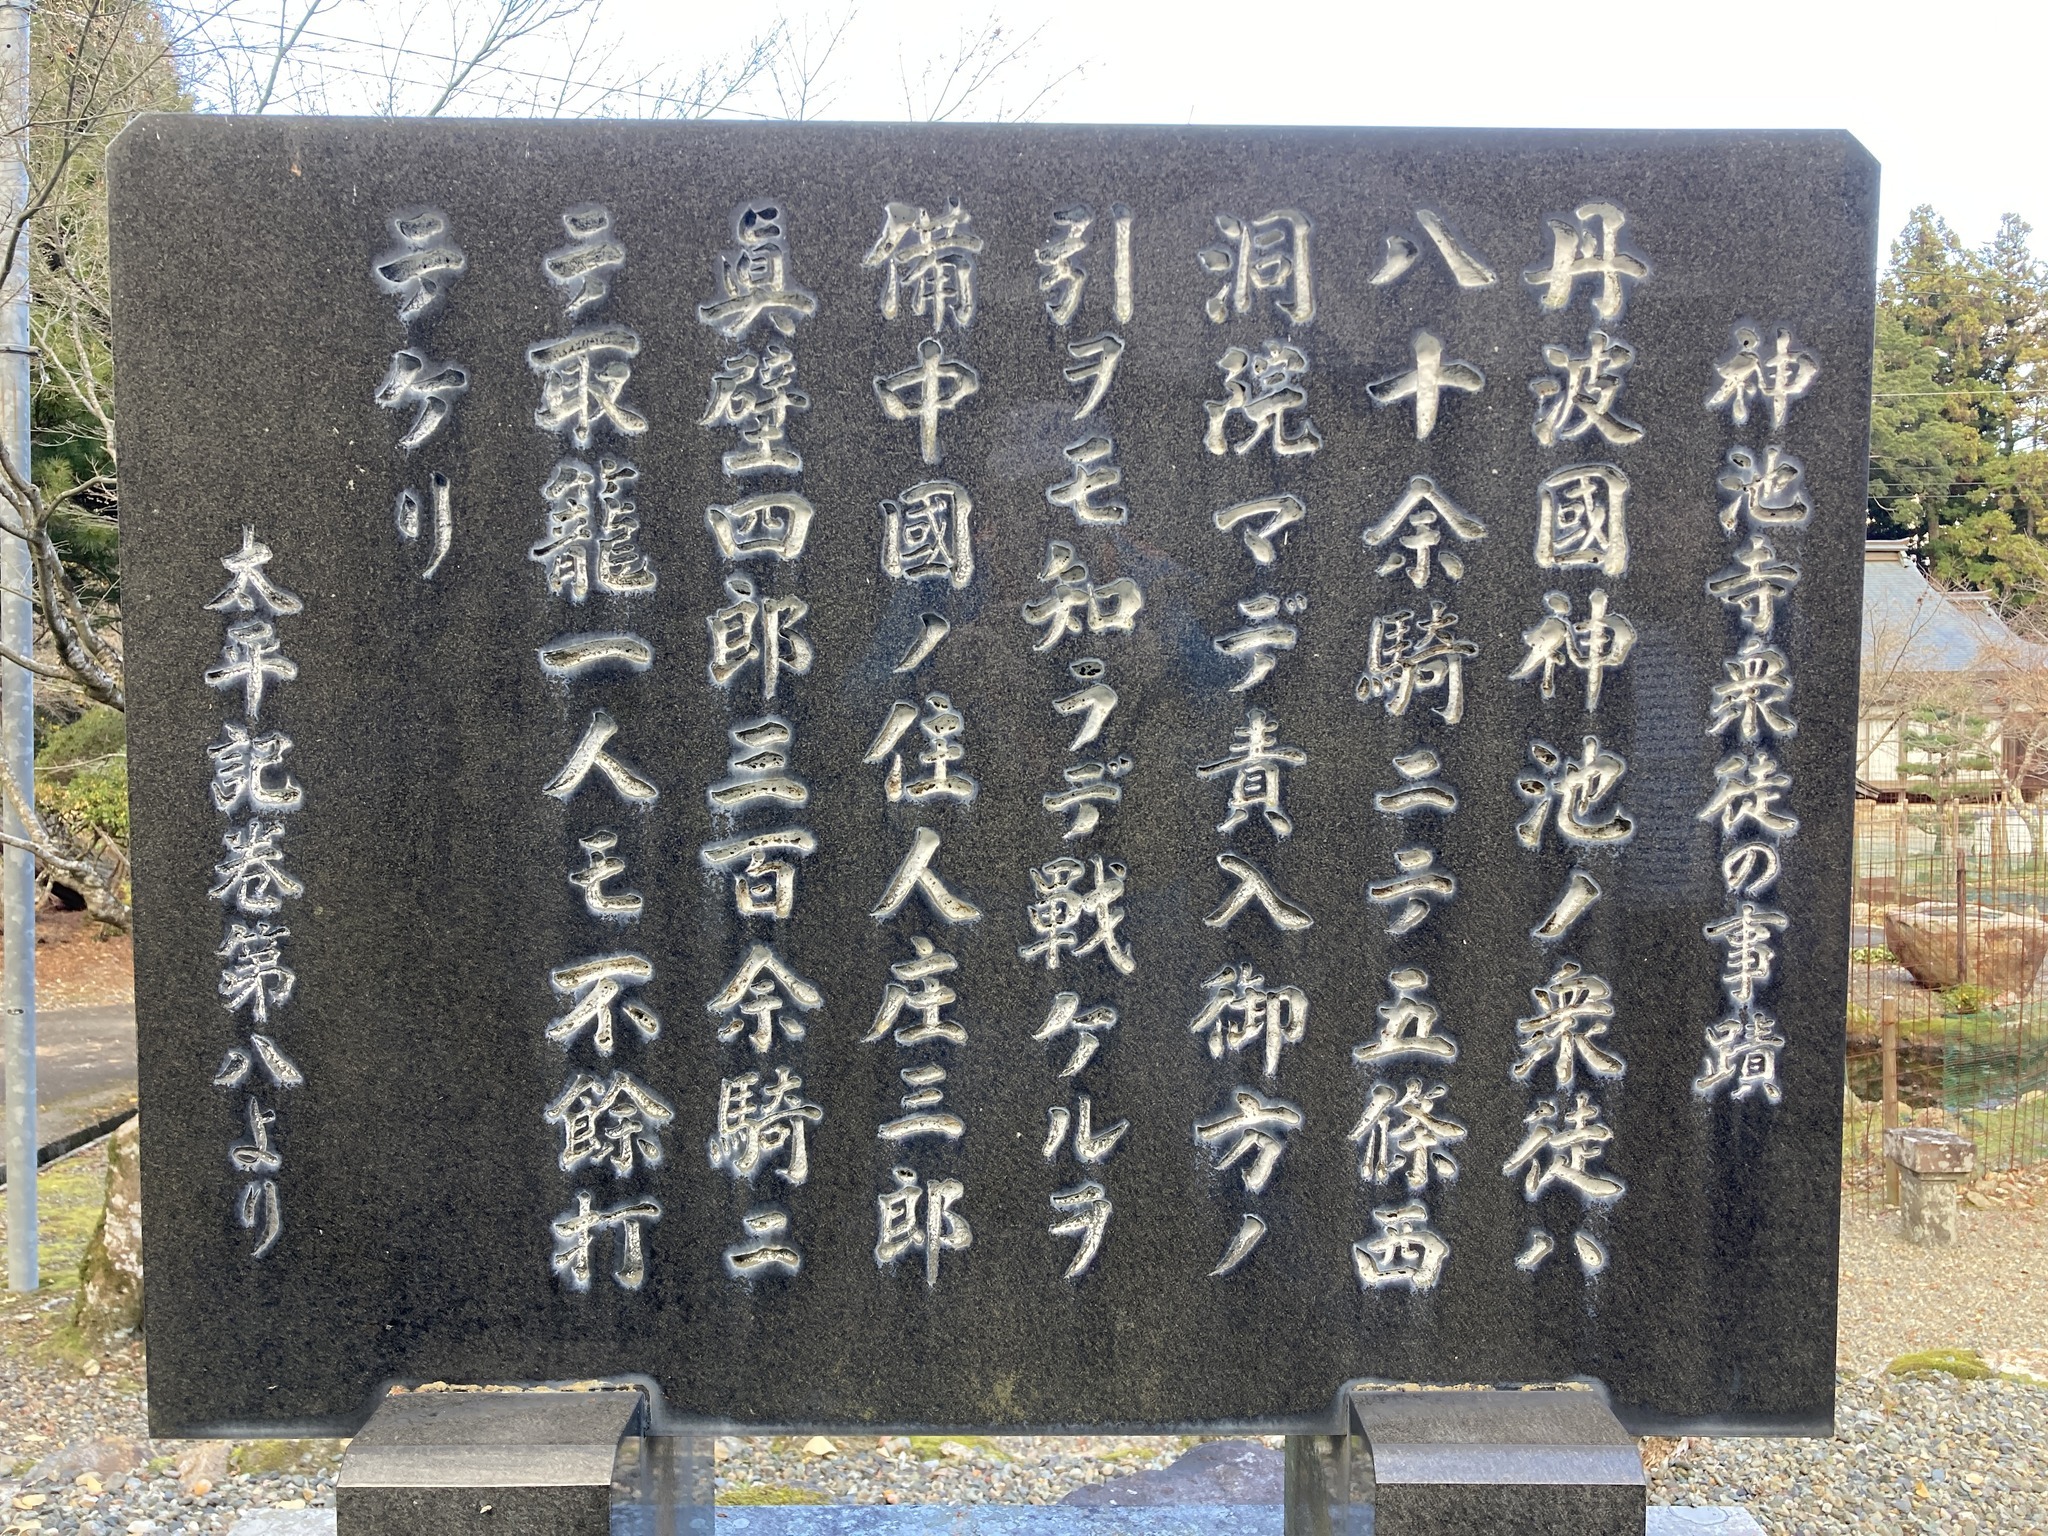 神池寺衆徒の事蹟
丹波國神池ノ衆徒ハ
八十余騎ニテ五條西
洞院マデ責入御方ノ
引ヲモ知ラデ戰ケルヲ
備中國ノ住人庄三郎
眞壁四郎三百余騎ニ
テ取籠一人モ不餘打
テケリ
太平記巻第八より